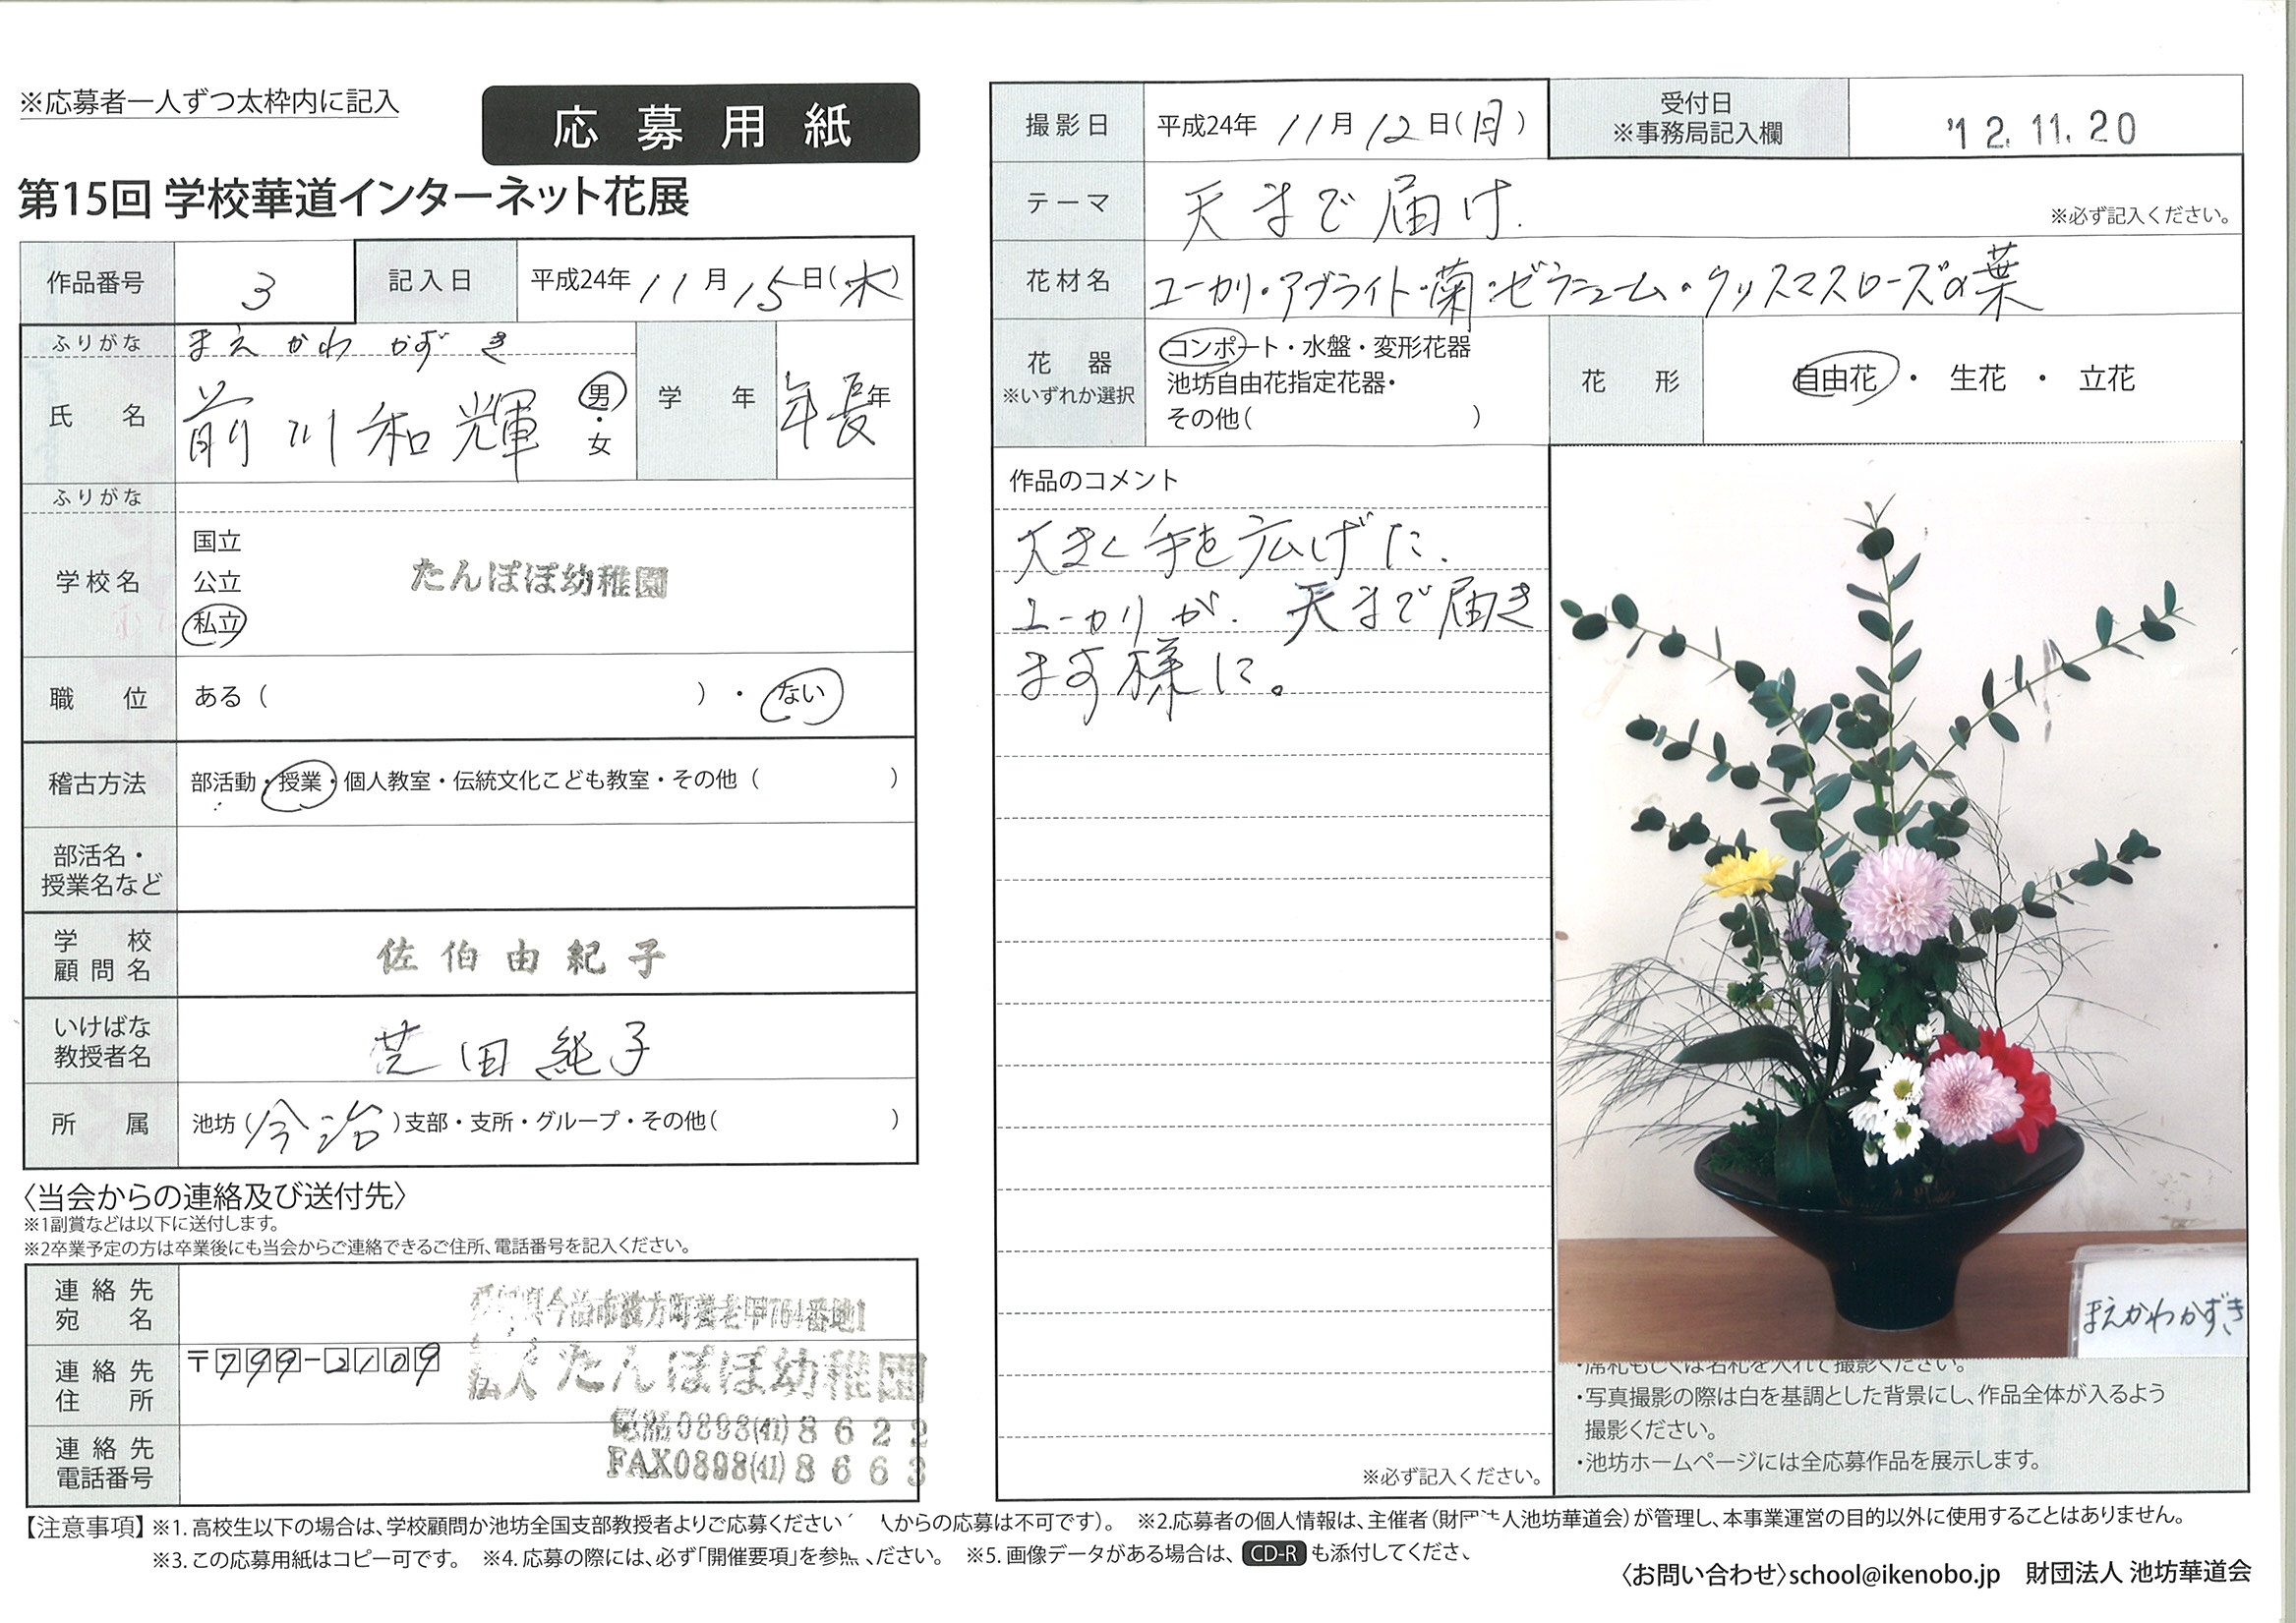 ※応募者一人ずつ太枠内に記入
応募用紙
第15回 学校華道インターネット花展
作品番号 3 記入日 平成24年 11月 15日(木)
ふりがな まえ かわ かずき
氏名 前川和輝 男・女 学年 年長年
ふりがな
学校名 国立 公立 私立 たんぽぽ幼稚園
職位 ある( )・ない
稽古方法 部活動・授業・個人教室・伝統文化こども教室・その他( )
部活名・授業名など
学校顧問名 佐伯由紀子
いけばな教授者名 芝田純子
所属 池坊(今治)支部・支所・グループ・その他( )
〈当会からの連絡及び送付先〉
※1副賞などは以下に送付します。
※2卒業予定の方は卒業後にも当会からご連絡できるご住所、電話番号を記入ください。
連絡先宛名
今治市波方町養老甲764番地1
連絡先住所 〒799-2109
法人 たんぽぽ幼稚園
連絡先電話番号
電話0898(41)8622
FAX0898(41)8663
撮影日 平成24年 11月12日(月)
受付日 ※事務局記入欄 '12.11.20
テーマ 天まで届け. ※必ず記入ください。
花材名 ユーカリ・アブライト・菊・ゼラニューム・クリスマスローズの葉
花器 ※いずれか選択 コンポート・水盤・変形花器
池坊自由花指定花器・
その他( )
花形 自由花・生花・立花
作品のコメント
大きく手を広げた.
ユーカリが. 天まで届き
ます様に。
※必ず記入ください。
まえかわかずき
・席札もしくは名札を入れて撮影ください。
・写真撮影の際は白を基調とした背景にし、作品全体が入るよう
撮影ください。
・池坊ホームページには全応募作品を展示します。
【注意事項】※1. 高校生以下の場合は、学校顧問か池坊全国支部教授者よりご応募ください 人からの応募は不可です)。 ※2.応募者の個人情報は、主催者(財団法人池坊華道会)が管理し、本事業運営の目的以外に使用することはありません。
※3. この応募用紙はコピー可です。 ※4. 応募の際には、必ず「開催要項」を参照ください。 ※5. 画像データがある場合は、CD-Rも添付してくださ
〈お問い合わせ〉school@ikenobo.jp 財団法人 池坊華道会